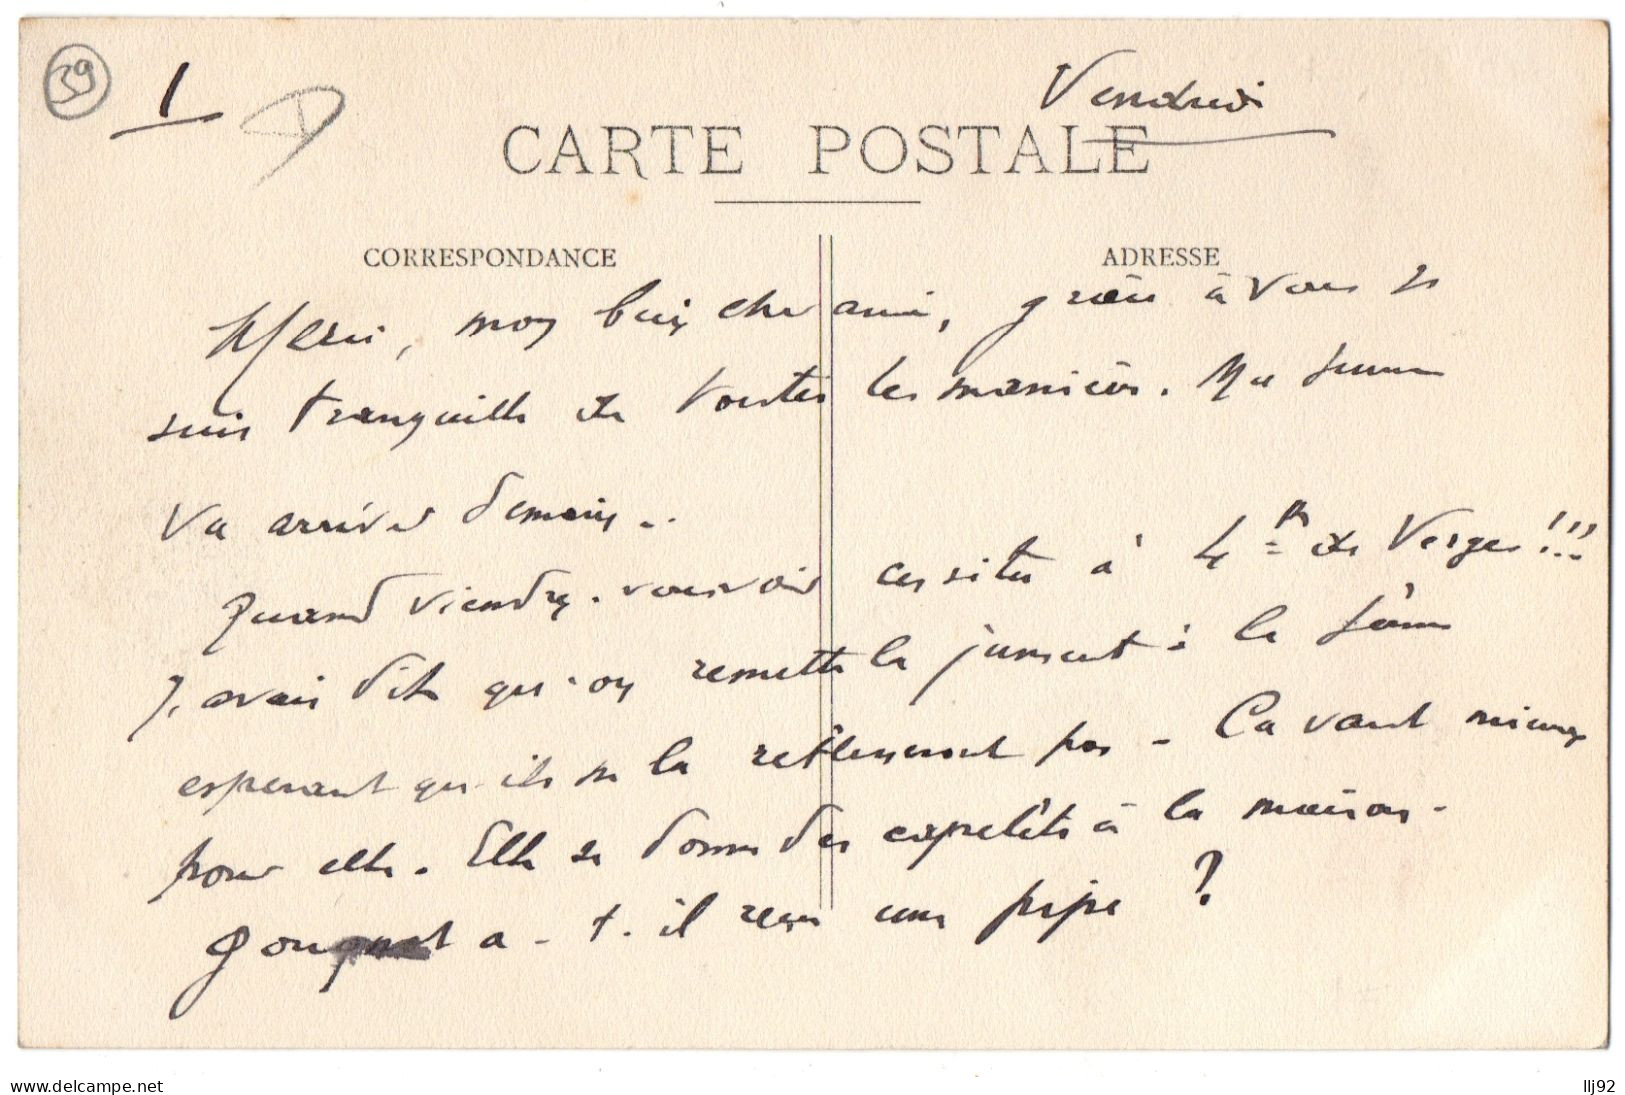 39
1
Vendredi
CARTE POSTALE
CORRESPONDANCE
ADRESSE
Merci, mon bien cher ami, grâce à vous je
suis tranquille de toutes les manières. Ma femme
va arriver demain..
Quand viendrez-vous voir ces sites à 4 de Verges !!!
J'avais dit qu'on remette la jument à la
esperant qu'ils ne la pas - Ca vaut mieux
pour elle. Elle se donne des à la maison.
a-t-il reçu une pipe ?
www.delcampe.net
llj92